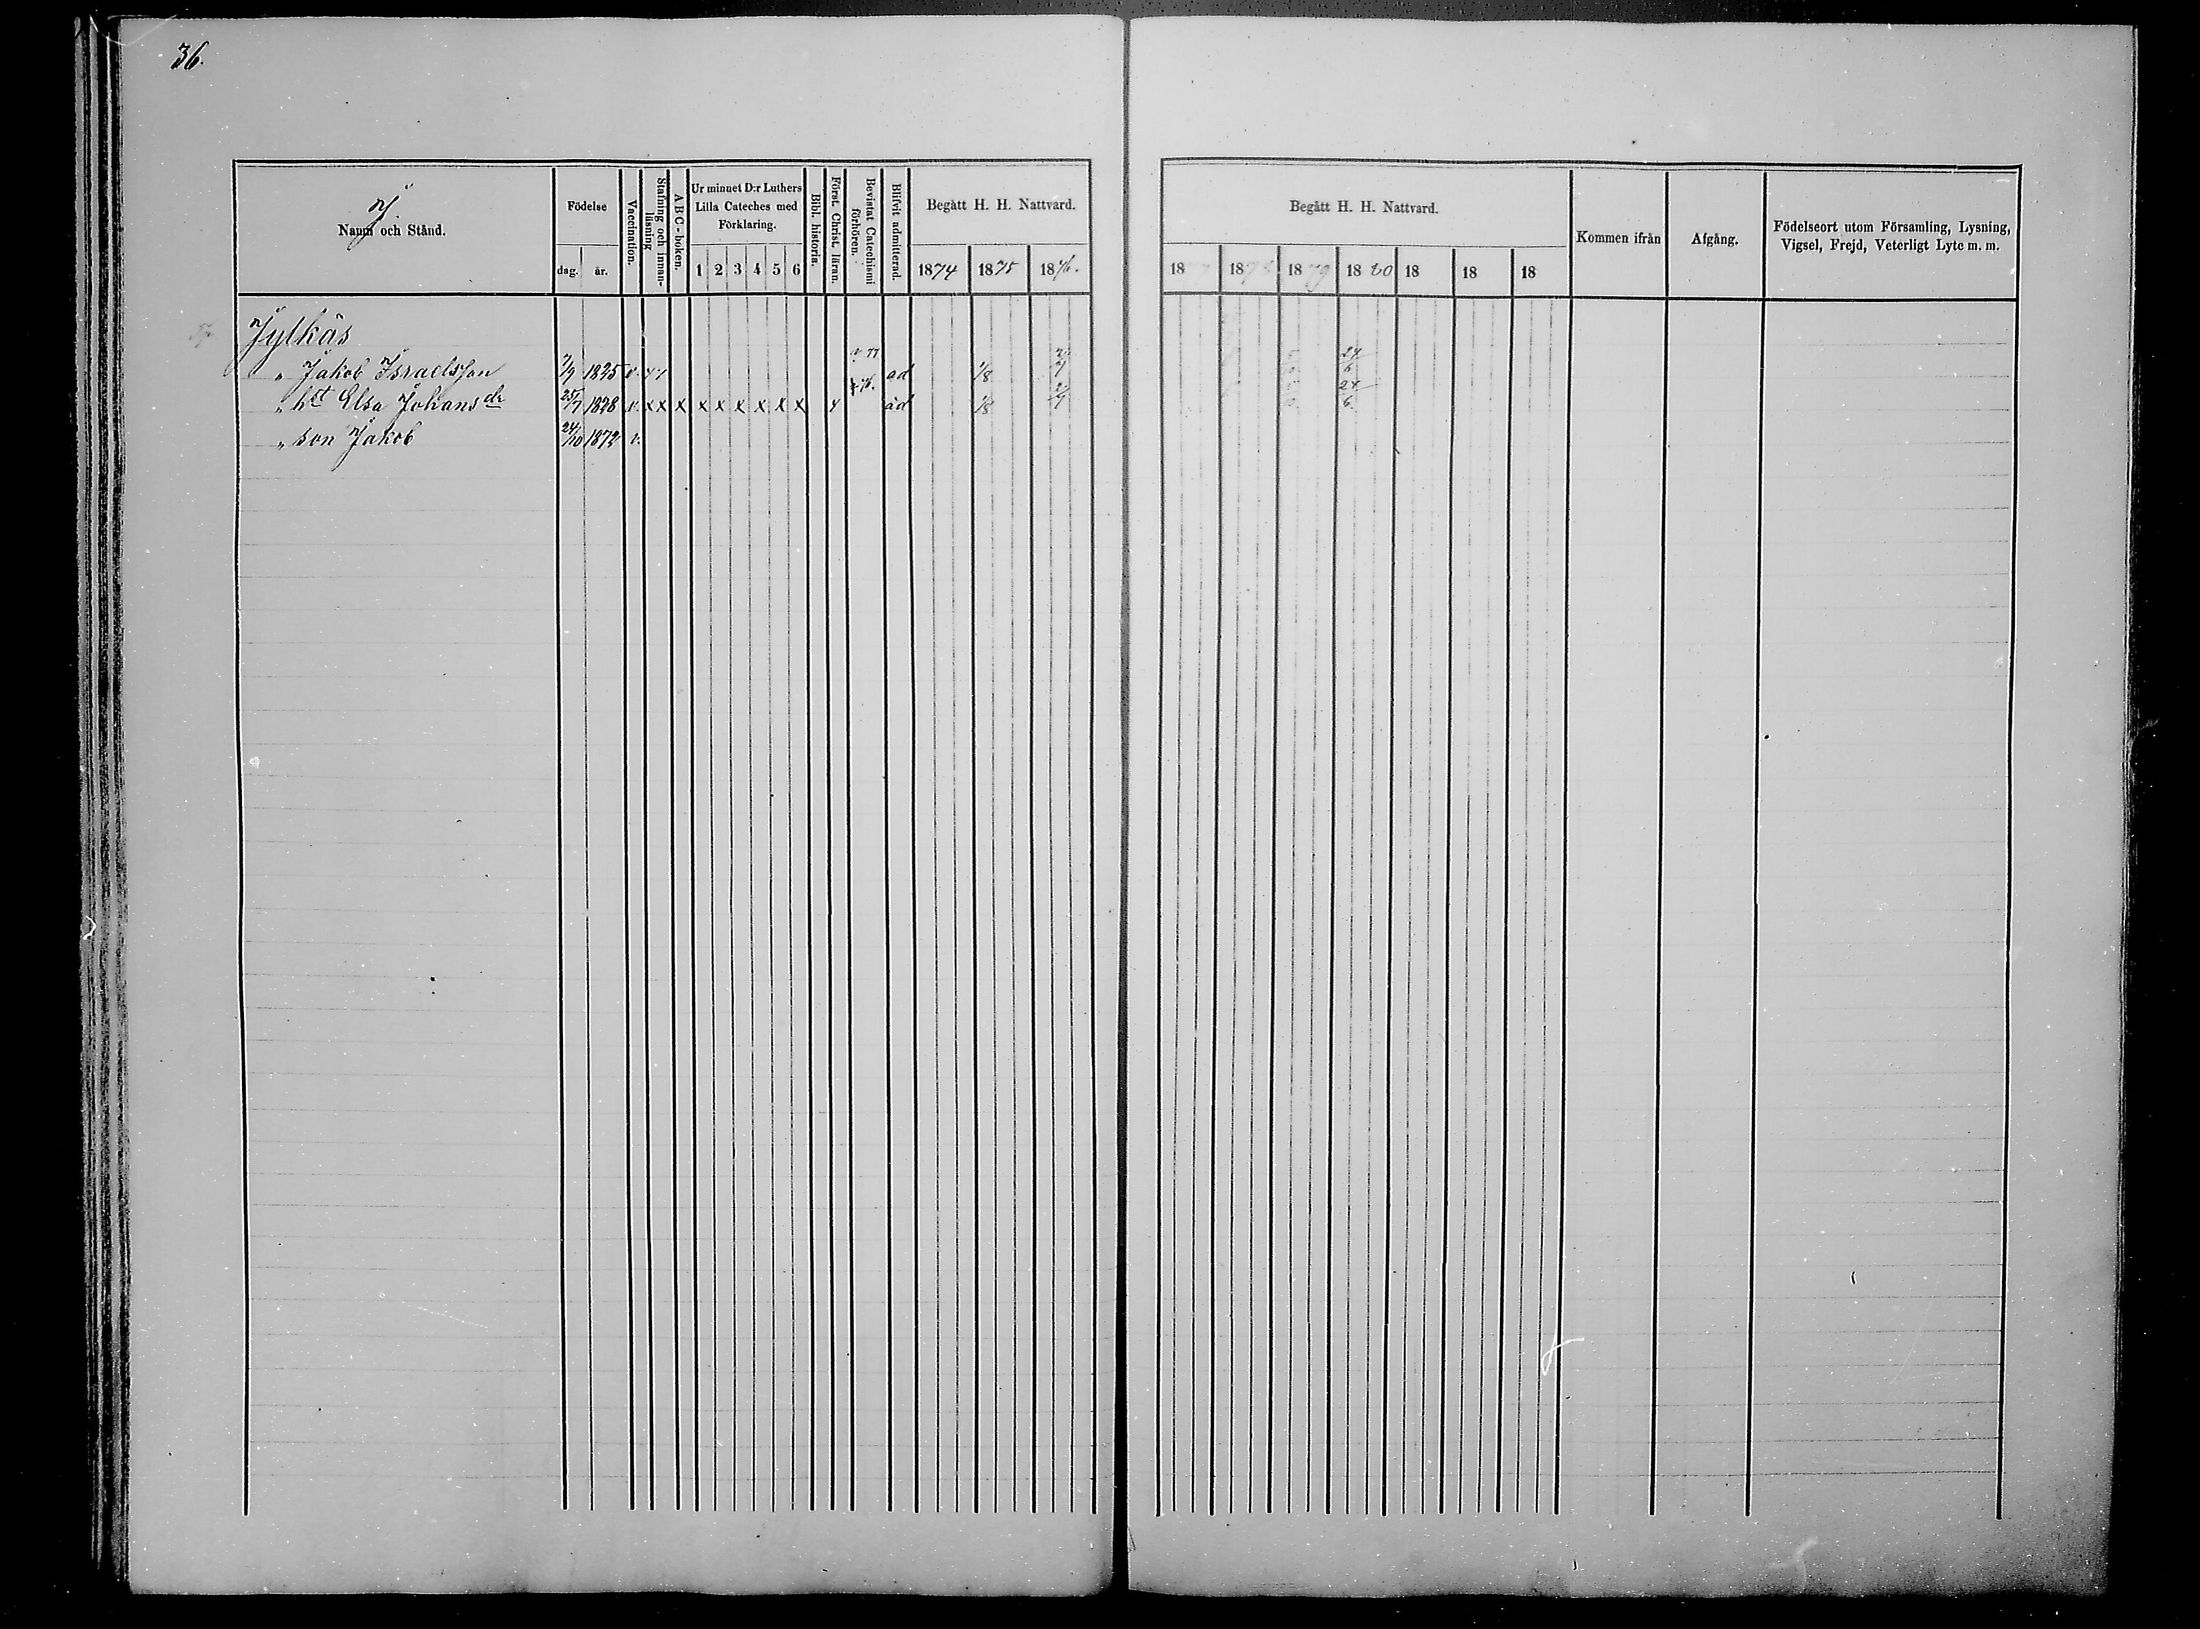 36.
J.
Namn och Stånd.
Födelse
dag. år.
Vaccination.
Stafning och innan-läsning
A B C-boken.
Ur minnet D:r Luthers Lilla Cateches med Förklaring.
1 2 3 4 5 6
Bibl. historia.
Först. Christ. läran.
Bevistat Catechismi förhören.
Blifvit admitterad.
Begått H. H. Nattvard.
1874 1875 1876.
Begått H. H. Nattvard.
18 1878 1879 1880 18 18 18
Kommen ifrån
Afgång.
Födelseort utom Församling, Lysning, Vigsel, Frejd, Veterligt Lyte m. m.
Jylkäs
" Jakob Israelsson 7/9 1825 v. ad 1/8 24/6
" h:st Elsa Johansdr 25/7 1828 v. x x x x x x x x x ad 1/8 24/6
" son Jakob 24/10 1872 v.